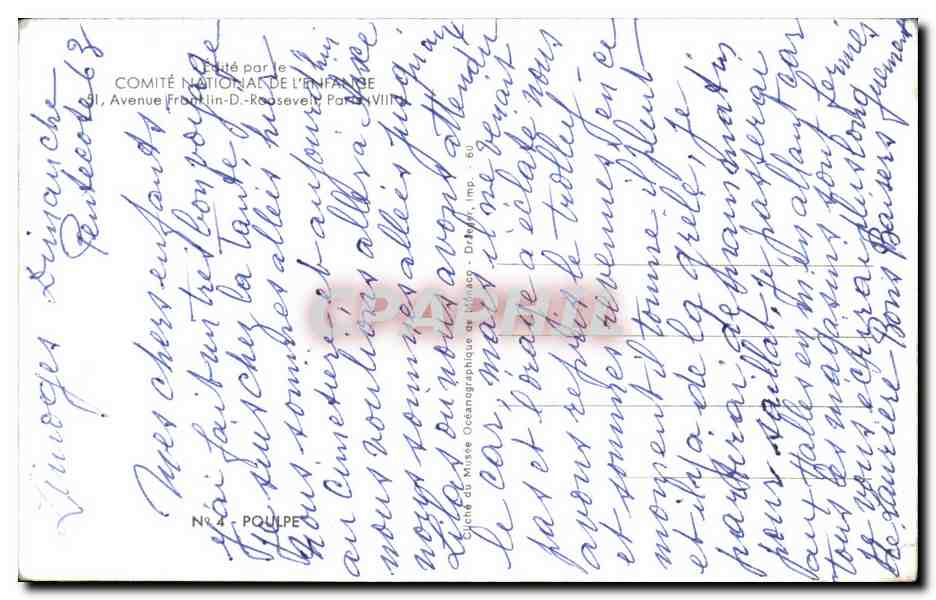 Édité par le
COMITÉ NATIONAL DE L'ENFANCE
51, Avenue Franklin-D.-Roosevelt, Paris (VIIIe)
Nº 4 - POULPE
Cliché du Musée Océanographique de Monaco - Draeger, Imp. - 60
CPAPHIL
Limoges Dimanche
Pentecote 63
Mes chers enfants
J'ai fait un très bon voyage
Je suis chez la tante
Nous sommes allées hier
au cimetière et aujourd'hui
nous voulions aller à
nous sommes allées jusqu'au
Lilas ou nous avons attendu
le car, mais il ne venait
pas et l'orage a éclaté nous
avons repris le trolley
et sommes revenues, en ce
moment il tonne il pleut
et il y a de la grêle, je
partirai de mardi matin
pour je passerai
aux Halles en m'en allant car
tous les magasins sont fermés
Je vous écrirai plus longuement
de Laurière Bons Baisers